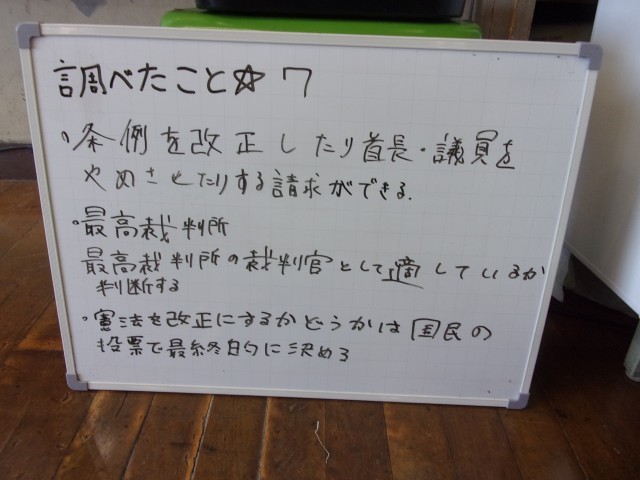 調べたこと☆7
・条例を改正したり首長・議員を
やめさせたりする請求ができる.
・最高裁判所
最高裁判所の裁判官として適しているか
判断する
・憲法を改正にするかどうかは国民の
投票で最終的に決める